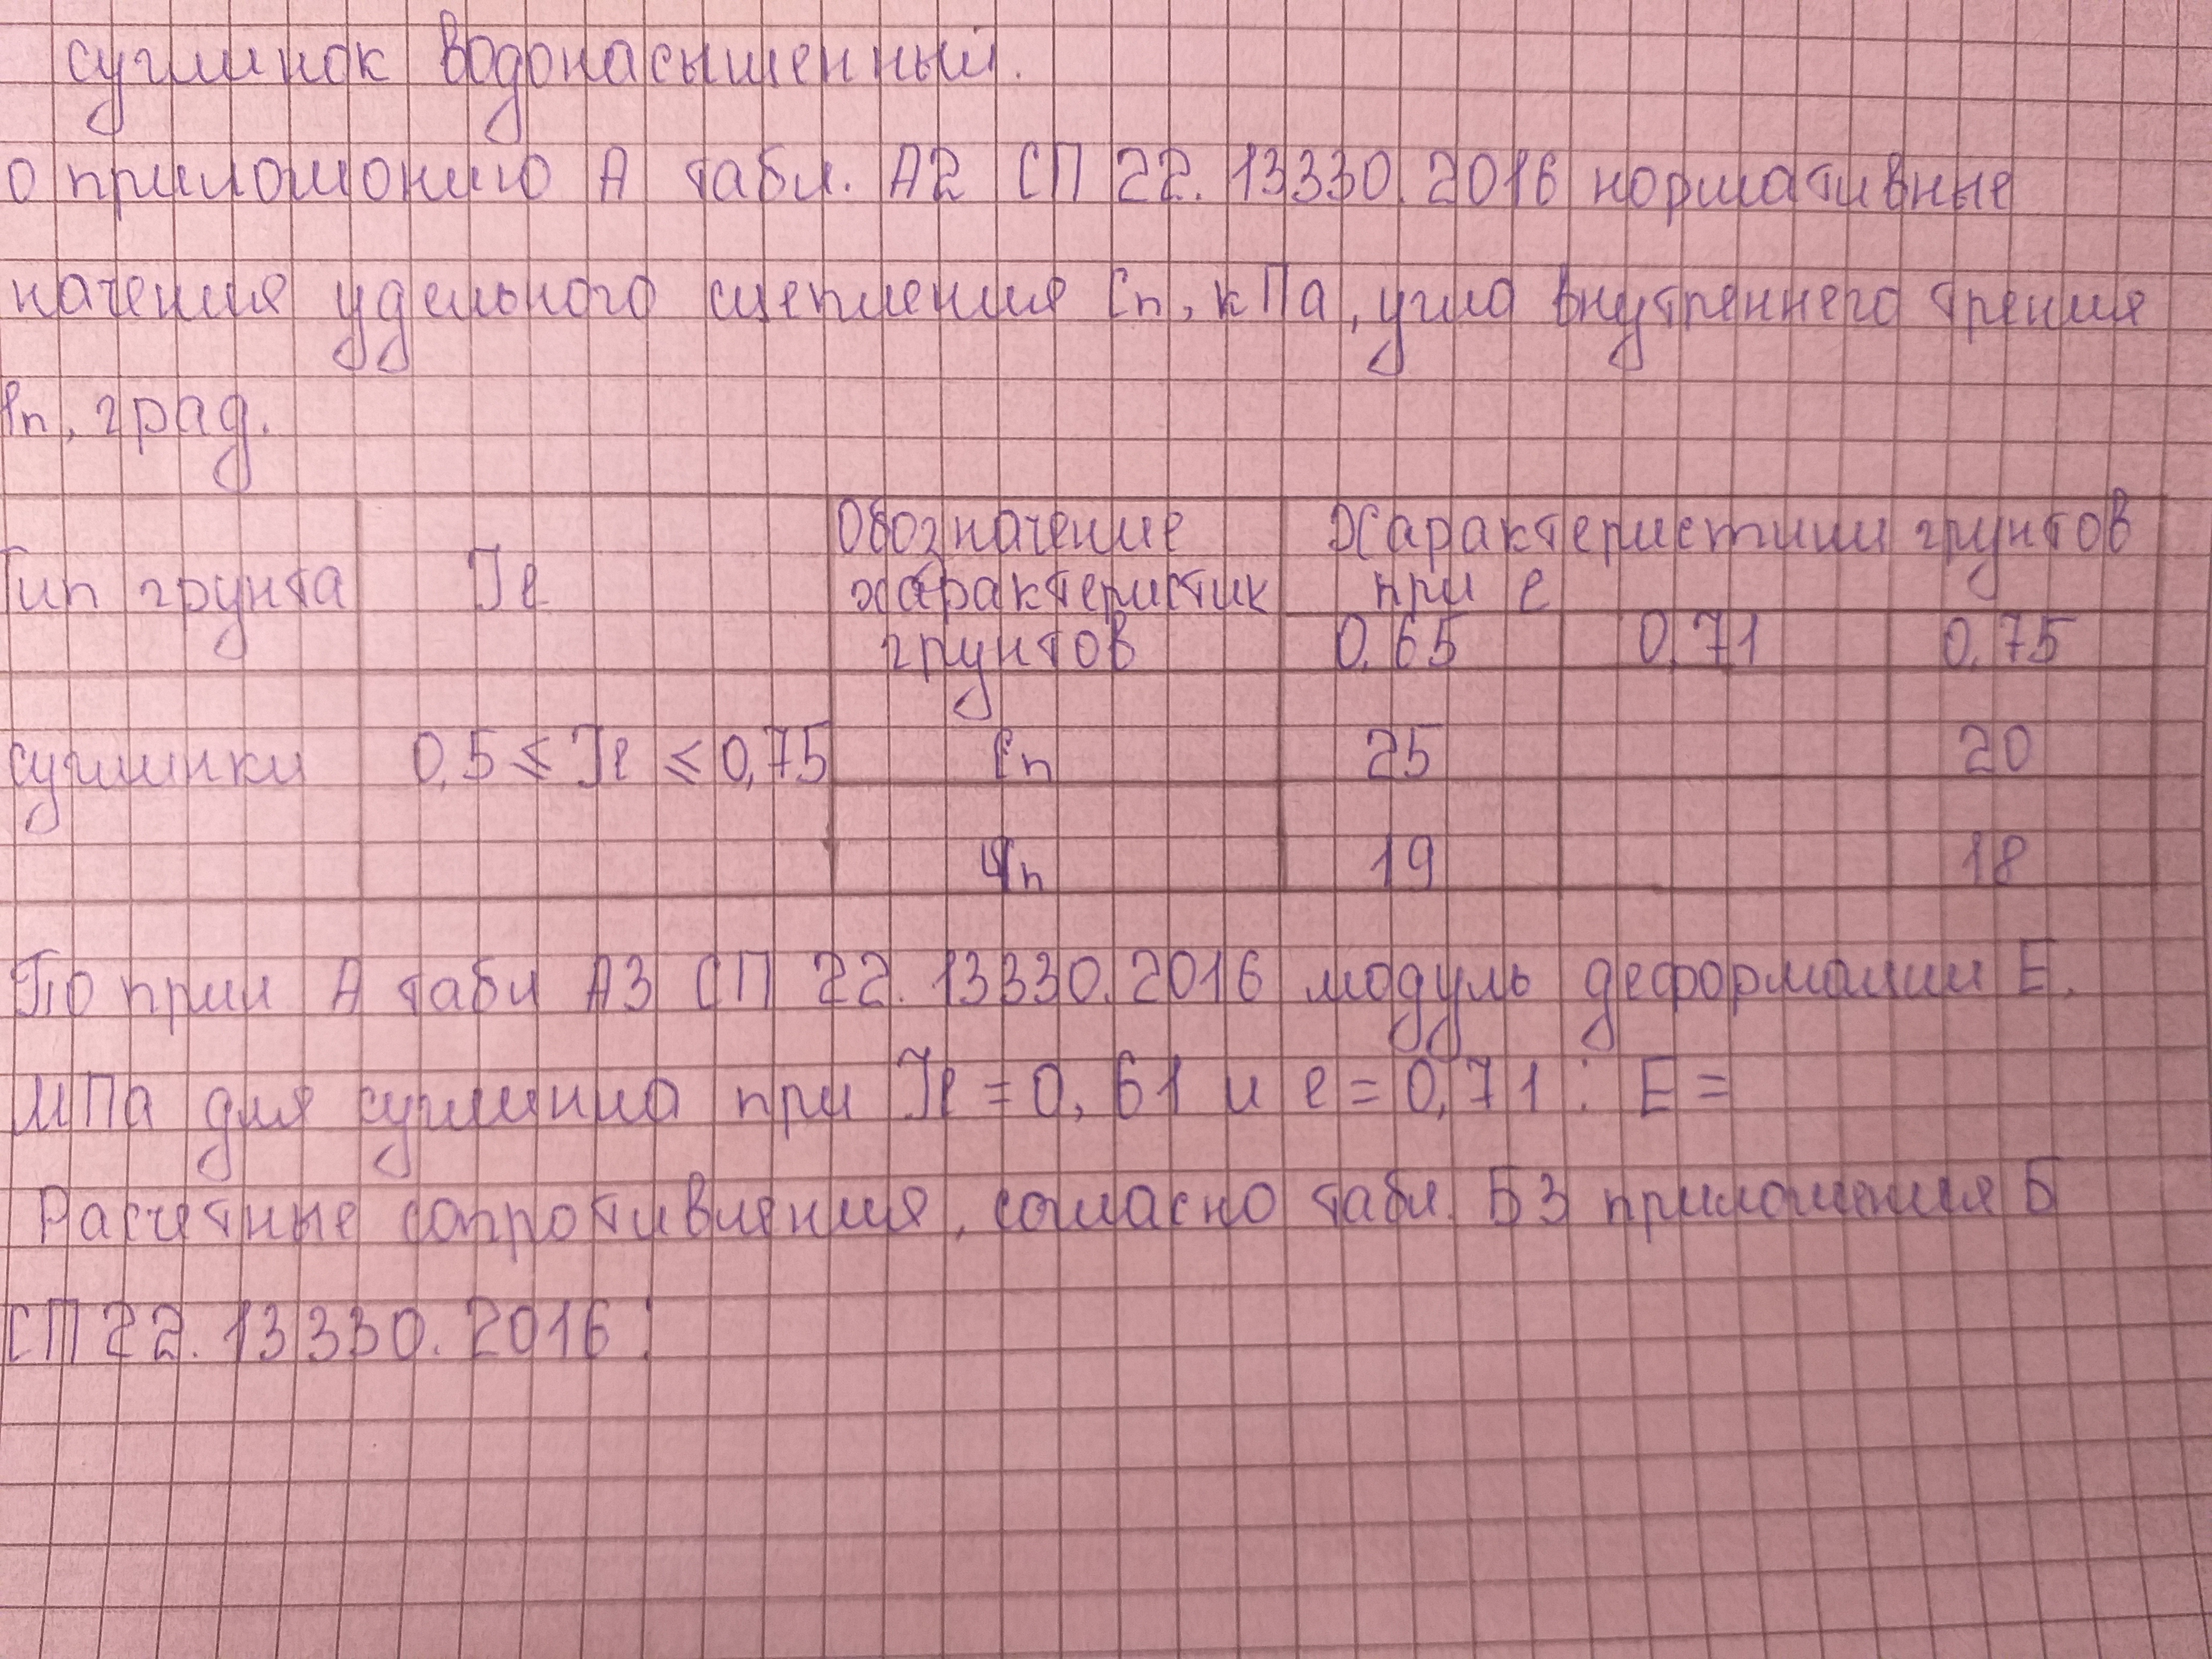 суглинок водонасыщенный.
о приложению А табл. А2 СП 22.13330.2016 нормативные
начения удельного сцепления Cn, кПа, угла внутреннего трения
φn, град.
Тип грунта Je Обозначение характеристик грунтов Характеристики грунтов при e
0,65 0,71 0,75
суглинки 0,5 ≤ Je ≤ 0,75 Cn 25 20
φn 19 18
По прил А табл А3 СП 22.13330.2016 модуль деформации E,
МПа для суглинка при Je = 0,61 и e = 0,71 : E =
Расчетные сопротивления, согласно табл. Б3 приложения Б
СП 22.13330.2016 :